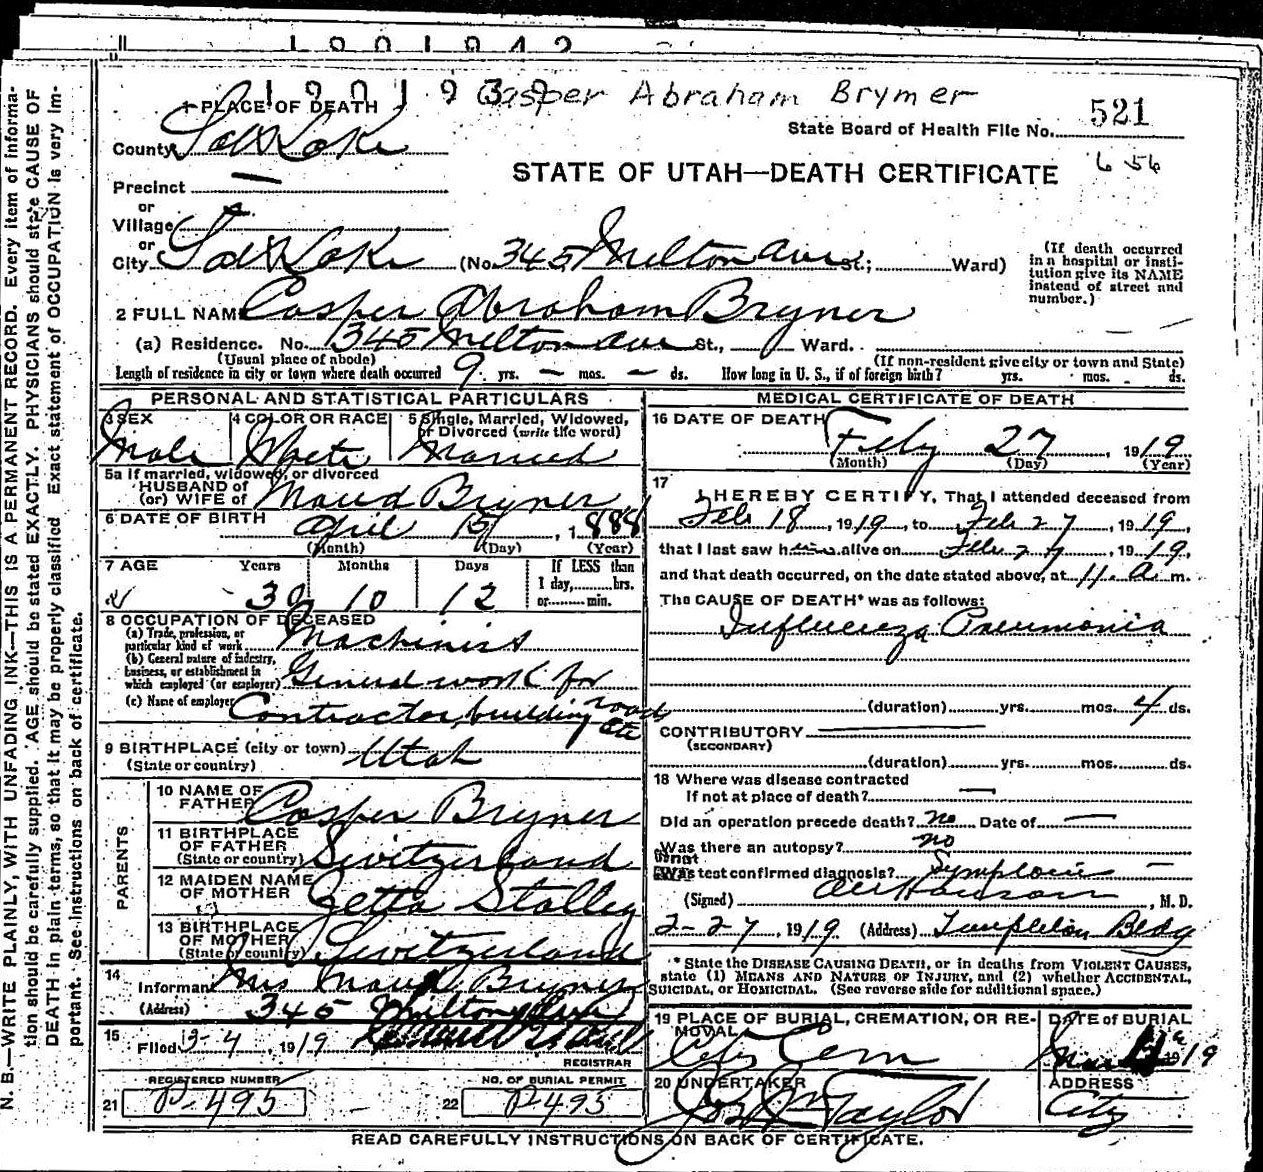 1901942
1901939 Casper Abraham Brymer
1 PLACE OF DEATH
521
State Board of Health File No.
County Salt Lake
STATE OF UTAH—DEATH CERTIFICATE 656
Precinct —
or
Village
or
City Salt Lake (No. 345 Milton Ave St.; Ward)
(If death occurred in a hospital or institution give its NAME instead of street and number.)
2 FULL NAME Casper Abraham Bryner
(a) Residence. No. 345 Milton Ave St., Ward.
(Usual place of abode) (If non-resident give city or town and State)
Length of residence in city or town where death occurred 9 yrs. — mos. — ds. How long in U. S., if of foreign birth? yrs. mos. ds.
PERSONAL AND STATISTICAL PARTICULARS
3 SEX Male
4 COLOR OR RACE White
5 Single, Married, Widowed, or Divorced (write the word) Married
5a If married, widowed, or divorced
HUSBAND of
(or) WIFE of Maud Bryner
6 DATE OF BIRTH April 15, 1888
(Month) (Day) (Year)
7 AGE Years Months Days If LESS than
1 day, hrs.
or min.
30 10 12
8 OCCUPATION OF DECEASED
(a) Trade, profession, or
particular kind of work Machinist
(b) General nature of industry,
business, or establishment in
which employed (or employer) General work for
(c) Name of employer Contractor, building roads etc
9 BIRTHPLACE (city or town) Utah
(State or country)
PARENTS
10 NAME OF
FATHER Casper Bryner
11 BIRTHPLACE
OF FATHER
(State or country) Switzerland
12 MAIDEN NAME
OF MOTHER Jetta Stalley
13 BIRTHPLACE
OF MOTHER
(State or country) Switzerland
14
Informant Mrs Maud Bryner
(Address) 345 Milton Ave
15
Filed 3-4, 1919
REGISTRAR
REGISTERED NUMBER
21 P-495
NO. OF BURIAL PERMIT
22 P-495
MEDICAL CERTIFICATE OF DEATH
16 DATE OF DEATH
Feby 27, 1919
(Month) (Day) (Year)
17
I HEREBY CERTIFY, That I attended deceased from
Feb 18, 1919, to Feb 27, 1919,
that I last saw him alive on Feb 27, 1919,
and that death occurred, on the date stated above, at 11. a m.
The CAUSE OF DEATH* was as follows:
Influenza Pneumonia
(duration) yrs. mos. 4 ds.
CONTRIBUTORY —
(SECONDARY)
(duration) yrs. mos. ds.
18 Where was disease contracted
If not at place of death? —
Did an operation precede death? no Date of —
Was there an autopsy? no
What test confirmed diagnosis? Symptoms —
(Signed) , M. D.
2-27, 1919 (Address) Templeton Bldg
* State the DISEASE CAUSING DEATH, or in deaths from VIOLENT CAUSES,
state (1) MEANS AND NATURE OF INJURY, and (2) whether ACCIDENTAL,
SUICIDAL, or HOMICIDAL. (See reverse side for additional space.)
19 PLACE OF BURIAL, CREMATION, OR REMOVAL
City Cem
DATE of BURIAL
Mar 1919
20 UNDERTAKER
Taylor
ADDRESS
City
READ CAREFULLY INSTRUCTIONS ON BACK OF CERTIFICATE.
N. B.—WRITE PLAINLY, WITH UNFADING INK—THIS IS A PERMANENT RECORD. Every item of informa-
tion should be carefully supplied. AGE should be stated EXACTLY. PHYSICIANS should state CAUSE OF
DEATH in plain terms, so that it may be properly classified. Exact statement of OCCUPATION is very im-
portant. See instructions on back of certificate.